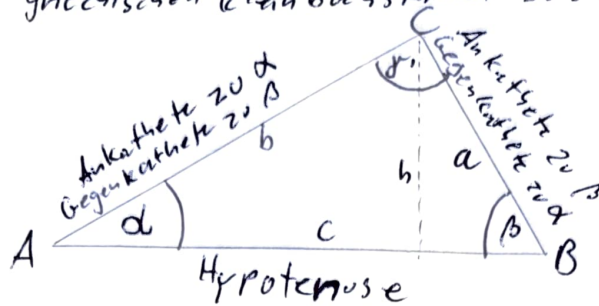 griechischen Kleinbuchst
C
Ankathete zu α
Gegenkathete zu β
b
γ
Ankathete zu β
Gegenkathete zu α
a
h
α
c
β
A
B
Hypotenuse